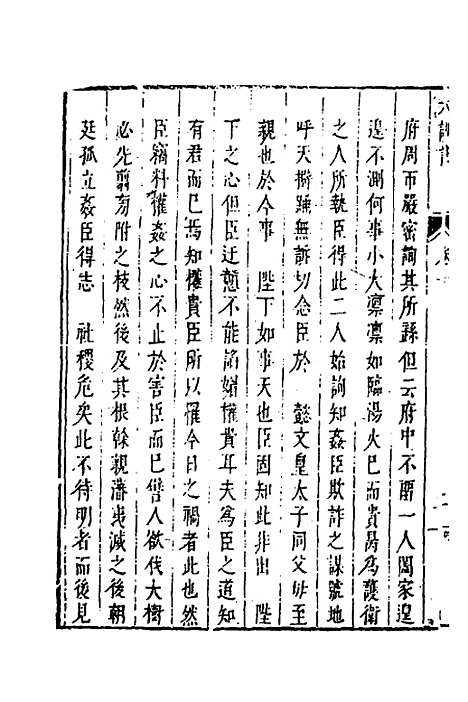 府周帀嚴密詞其所繇但云府中不畱一人闔家遑
遑不測何事小大凛凛如臨湯火巳而貴爲護衛
之人所執臣得此二人始詢知姦臣欺詐之謀號地
呼天擗踊無訴切念臣於　懿文皇太子同父母至
親也於今事　陛下如事天也臣固知此非出　陛
下之心但臣迂戇不能諂媚權貴耳夫爲臣之道知
有君而巳焉知權貴臣所以罹今日之禍者此也然
臣竊料權姦之心不止於害臣而巳譬人欲伐大樹
必先翦旁附之枝然後及其根幹親藩夷滅之後朝
廷孤立姦臣得志　社稷危矣此不待明者而後見